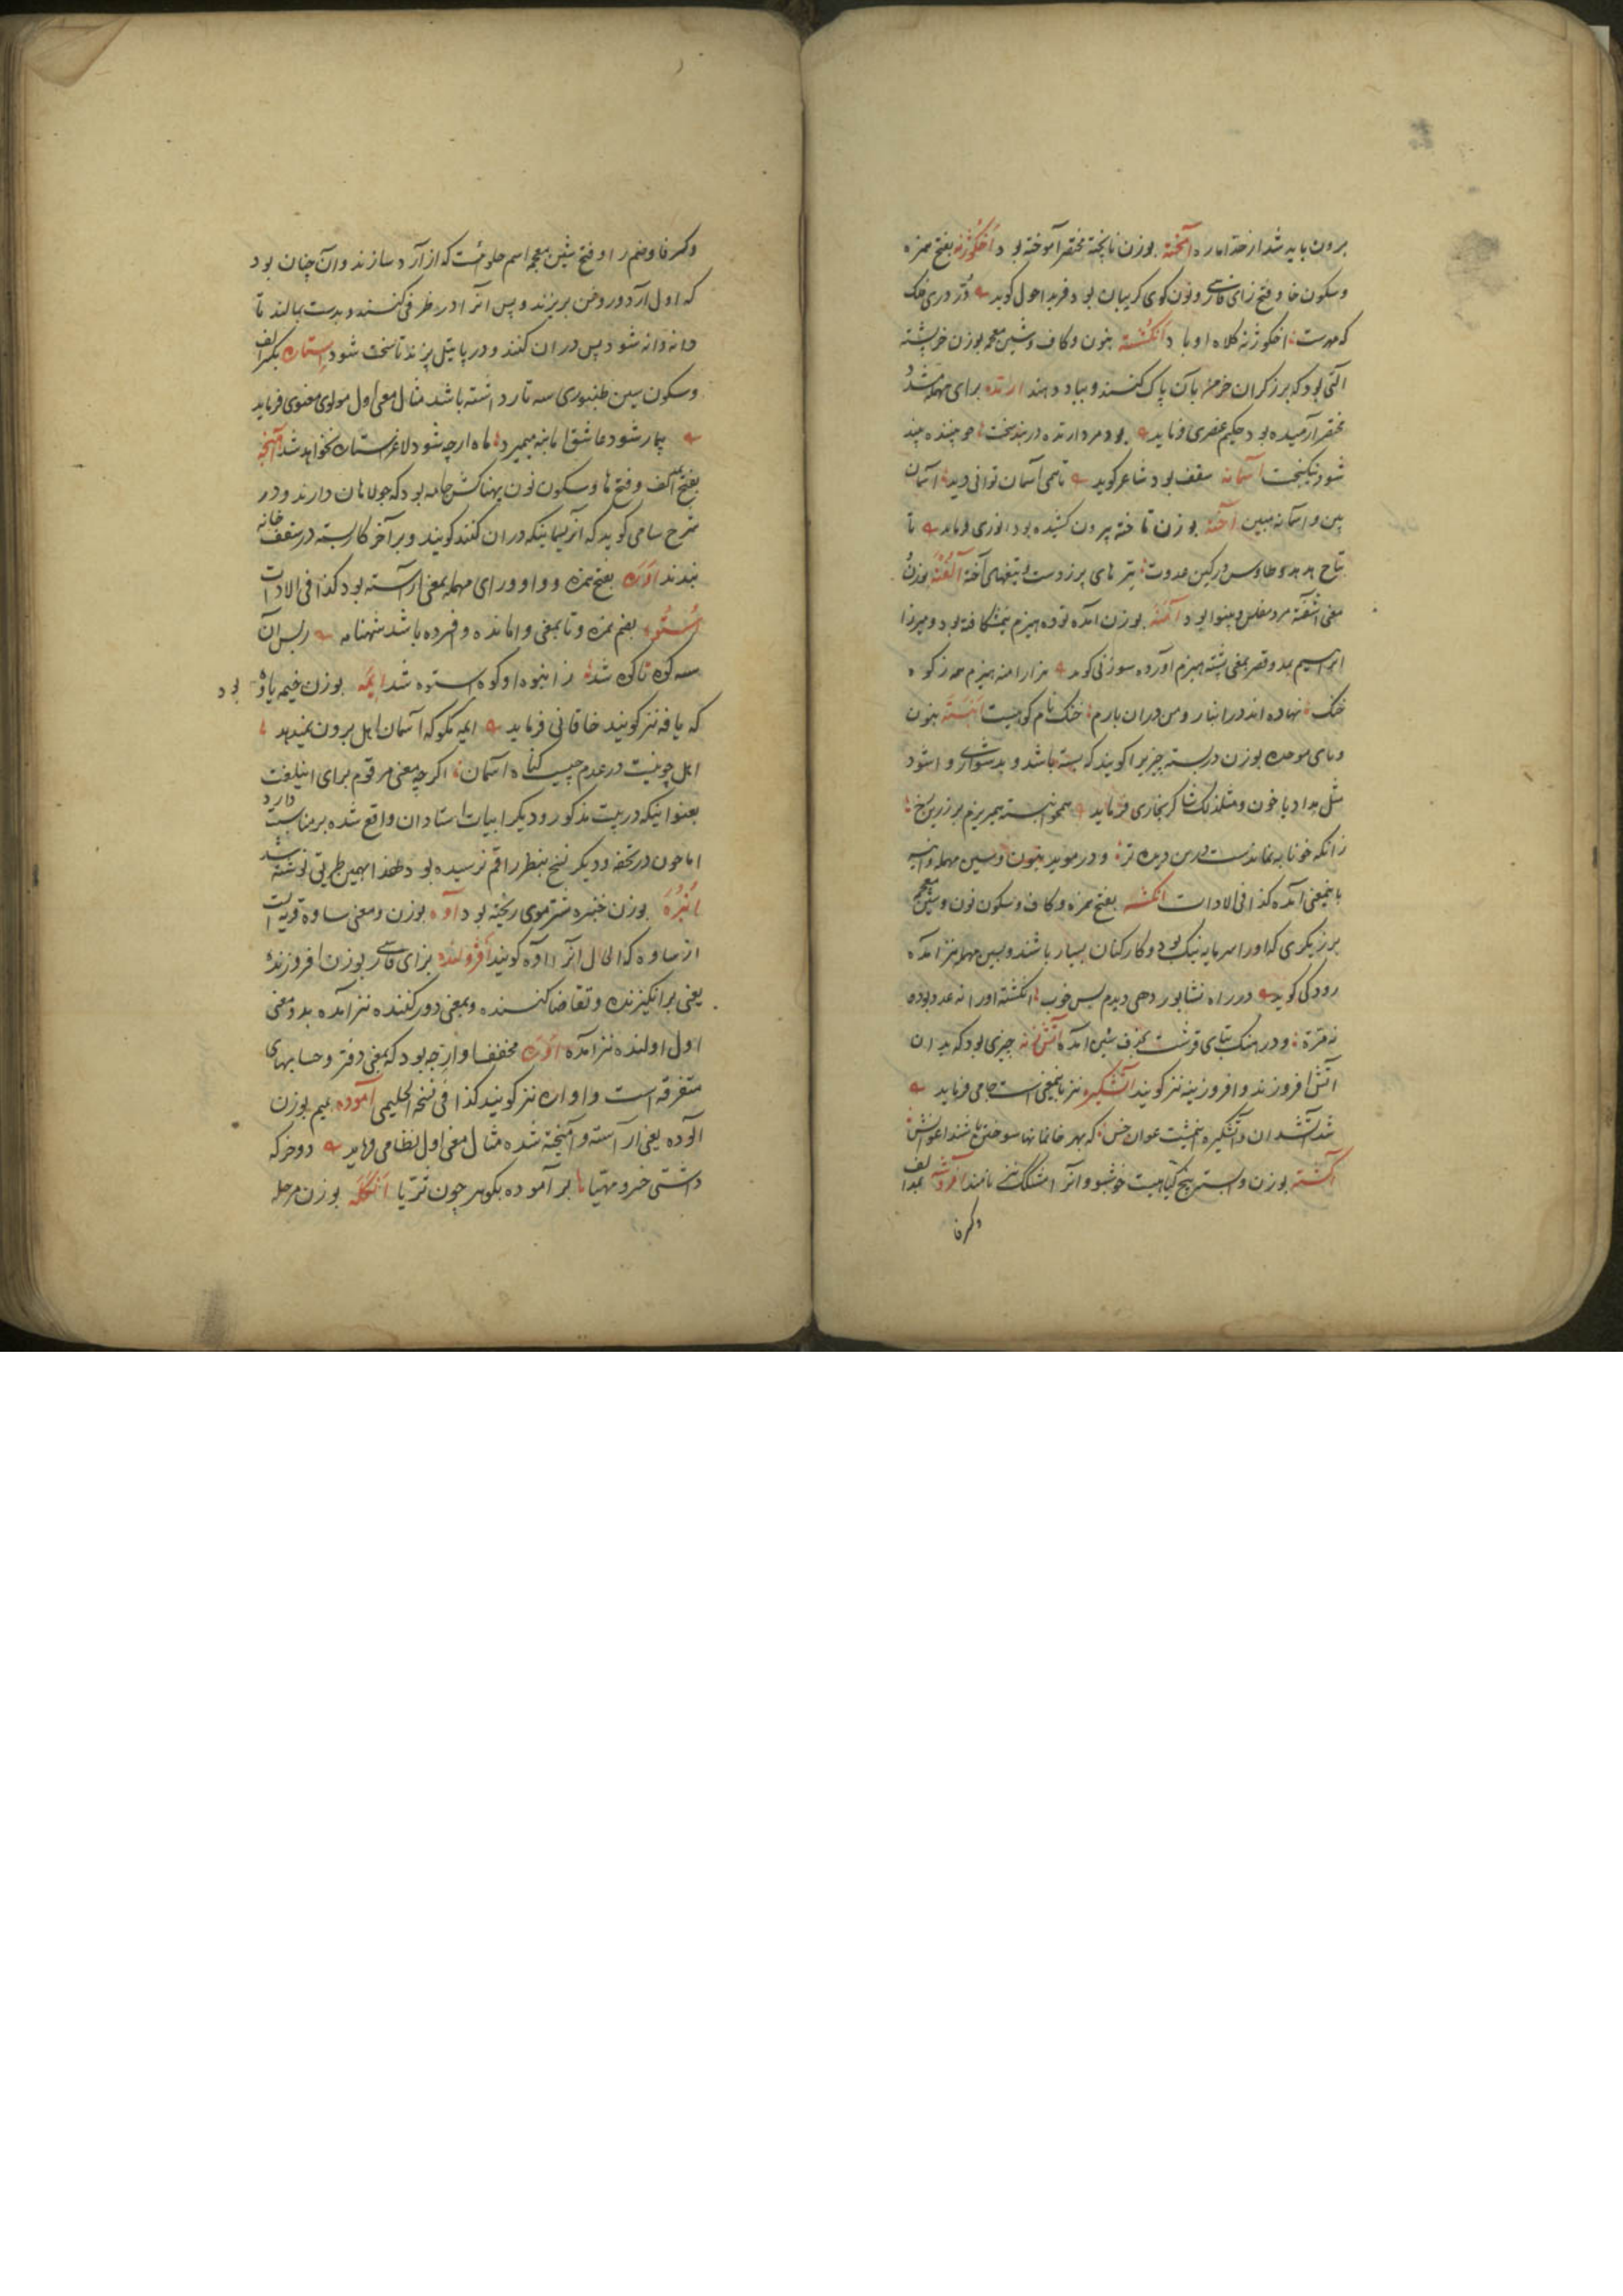 برون باید شد از خدا ماره آمخته بوزن ناپخته مختصر آموخته بود اخکوژنه بفتح همزه
و سکون خا و فتح زای فارسی و نون کوی کریبان بود فرید احول کوید در دری فلک
که مهرست اخکوژنه کلاه او باد انکشته بنون و کاف و شین معجمه بوزن خرپشته
آلتی بود که برزکران خرمن بآن پاک کنند و بباد دهند ارمده برای مهمله مشدد
مختصر آرمیده بود حکیم عنصری فرماید بود مرد ارمده در بند سخت چو جنبنده
شود نیکبخت آسمانه سقف بود شاعر کوید تا همی آسمان توانی دید آسمان
بین و آسمانه مبین آخته بوزن تاخته بیرون کشیده بود انوری فرماید تا
تاج هدهد و طاوس در کین عدوت تیرهای پرزدست و تیغهای آخته آلفته بوزن
معنی آشفته مرد مفلس و بینوا بود آمنه بوزن آمده توده هیزم شکافته بود و میرزا
ابراهیم بمد و قصر بمعنی پشته هیزم آورده سوزنی کوید هزار آمنه هیزم ز کوه
خنک نهاده اند در انبار و من دران بارم خنک نام کوهیست انبسته بنون
و بای موحده بوزن دربسته چیزیرا کویند که بسته باشد و بدشواری وا شود
مثل مداد یا خون و مثلذلک شاکر بخاری فرماید همی انبسته میریزم بر زرین رخ
زانکه خونابه نماندست درین دیده تر و در موید بنون و سین مهمله و
باینمعنی آمده کذا فی الادات انکشته بفتح همزه و کاف و سکون نون و شین معجمه
برزیکری که او را سرمایه نیک بود و کارکنان بسیار باشند و بسین مهمله نیز آمده
رودکی کوید در راه نشابور دهی دیدم بس خوب انکشته او را نه عدد بود و
نه مره و در فرهنک بتای قرشت بحذف شین آمده آتش زنه چیزی بود که بدان
آتش افروزند و افروزینه نیز کویند آتشکیره نیز باینمعنی است جامی فرماید
شد آتشدان و آتشکیره خبیثت عوان خس که بهر خانمانها سوختن باشند اعوانش
آکشته بوزن وابسته بیخ کیاهیست خوشبو و آنرا مشکک نیز نامند افروشه بمد الف
و کسر فا
و کسر فا و ضم را و فتح شین معجمه اسم حلوائیست که از آرد سازند و آن چنان بود
که اول آرد و روغن بریزند و پس آنرا در ظرفی کنند و بدست بمالند تا
دانه دانه شود پس در آن کنند و در پاتیل پزند تا سخت شود ستاره بکسر الف
و سکون سین طنبوری سه تار داشته باشد مثال معنی اول مولوی معنوی فرماید
بیمار شود عاشق اما بنه میمیرد ماه ارچه شود لاغر استاره نخواهد شد آهنجه
بفتح الف و فتح ها و سکون نون پهناکش جامه بود که جولاهان دارند و در
شرح سامی کوید که آن ریسمانیکه دران کنند کویند و بر آخر کار بسته در سقف خانه
بندند آوره بفتح همزه و واو و رای مهمله بمعنی آراسته بود کذا فی الادات
استوه بضم همزه و تا بمعنی وامانده و فسرده باشد شهنامه ز بس آن
سه کوه تا کوه شد ز انبوه او کوه استوه شد ایمه بوزن خیمه یاوه بود
که یافه نیز کویند خاقانی فرماید ایمه مکو که آسمان اهل برون نمیدهد
اهل چو نیست در عدم چیست کناه آسمان اکرچه معنی مرقوم برای این لغت
بعنوانیکه در بیت مذکور و دیکر ابیات استادان واقع شده بر مناسبت دارد
اما چون در تحفه و دیکر نسخ بنظر راقم نرسیده بود لهذا بهمین طریق نوشته شد
انبره بوزن خنبره شتر موی ریخته بود آوه بوزن و معنی ساوه قریه است
از ساوه که الحال آنرا اوه کویند افژولنده بزای فارسی بوزن افروزنده
یعنی برانکیزنده و تقاضا کننده و بمعنی دور کننده نیز آمده بدو معنی
اول اولنده نیز آمده اوره مخفف اوارجه بود که بمعنی دفتر و حسابهای
متفرقه است و اواره نیز کویند کذا فی نسخه الحلیمی آموده بمیم بوزن
آلوده یعنی آراسته و آمیخته شده مثال معنی اول نظامی فرماید دو خرکه
داشتی خسرو مهیا بر آموده بکوهر چون ثریا انکله بوزن مرحله